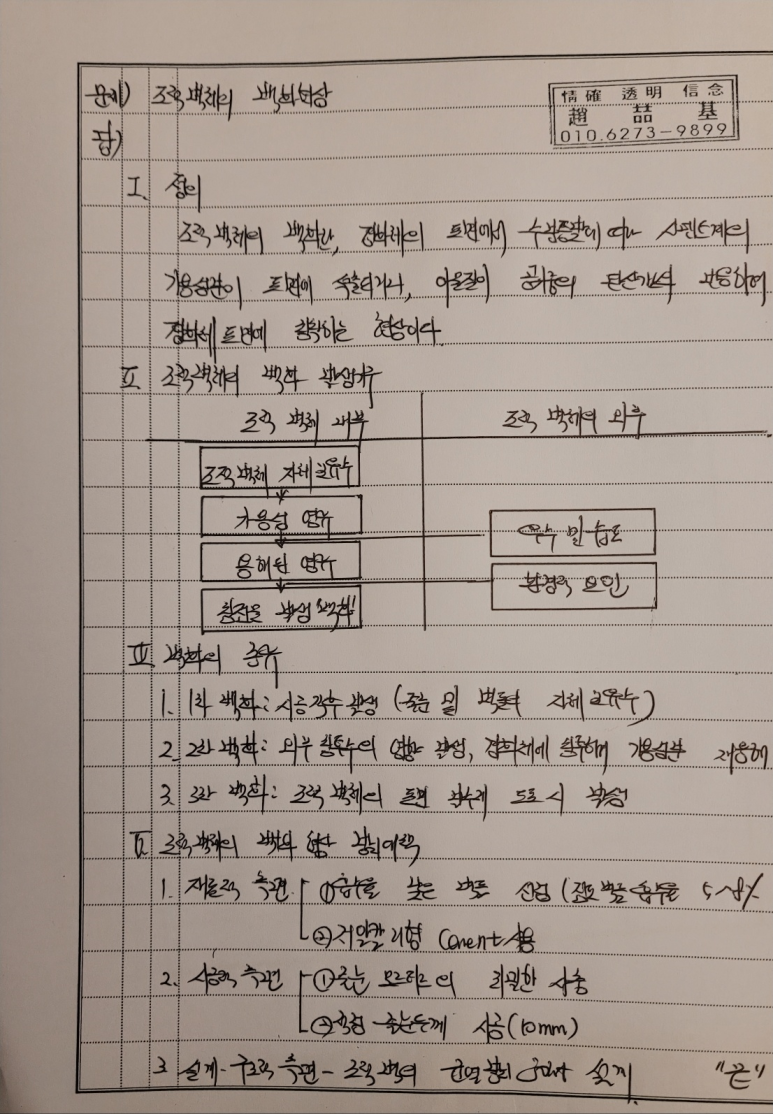 문제) 조적벽체의 백화현상
情確 透明 信念
趙 喆 基
010.6273-9899
답)
I. 정의
조적벽체의 백화란, 경화체의 표면에서 수분증발에 따라 시멘트계의
가용성분이 표면에 석출되거나, 이물질이 공기중의 탄산가스와 반응하여
경화체 표면에 침착하는 현상이다.
II. 조적벽체의 백화 발생기구
조적 벽체 내부
조적 벽체의 외부
조적벽체 자체 보유수
가용성 염류
우수 및 습도
용해된 염류
환경적 요인
침전물 발생(백화)
III. 백화의 종류
1. 1차 백화: 시공직후 발생 (줄눈 및 벽돌의 자체 보유수)
2. 2차 백화: 외부 침투수의 영향 발생, 경화체에 침투하여 가용성분 재용해
3. 3차 백화: 조적 벽체의 표면 발수제 도포 시 발생
IV. 조적벽체의 백화 현상 방지대책
1. 재료적 측면
① 흡수율 낮은 벽돌 선정 (점토벽돌 흡수율 5~8%
② 저알칼리형 Cement 사용
2. 시공적 측면
① 줄눈 모르타르의 치밀한 사춤
② 적정 줄눈두께 시공 (10mm)
3. 설계·구조적 측면 - 조적 벽의 균열방지 설계
"끝"